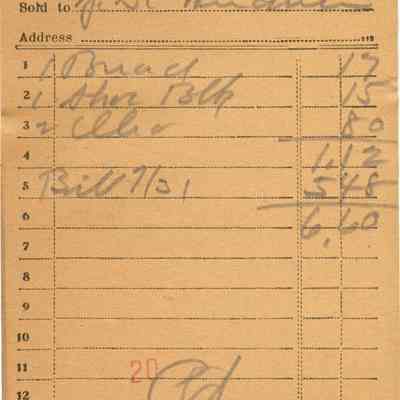 Sold to J. D.
Address
1 1 Bread 17
2 1 Shoe Blk 15
3 2 Oleo 80
4 1.12
5 Bill 7/31 5 48
6 6.60
7
8
9
10
11 20 Pd
12